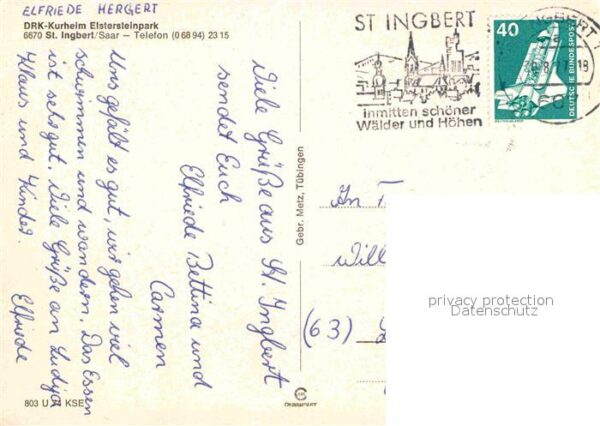 ELFRIEDE HERGERT
DRK-Kurheim Elstersteinpark
6670 St. Ingbert/Saar — Telefon (0 68 94) 23 15
Viele Grüße aus St. Ingbert
sendet Euch
Elfriede Bettina und
Carmen
Uns gefällt es gut, wir gehen viel
schwimmen und wandern. Das Essen
ist sehr gut. Viele Grüße an Ludija
Klaus und Kinder.
Elfriede
803 U
KSE
Gebr. Metz, Tübingen
ST INGBERT
inmitten schöner
Wälder und Höhen
40
DEUTSCHE BUNDESPOST
INGBERT 1
An
Will
(63)
privacy protection
Datenschutz